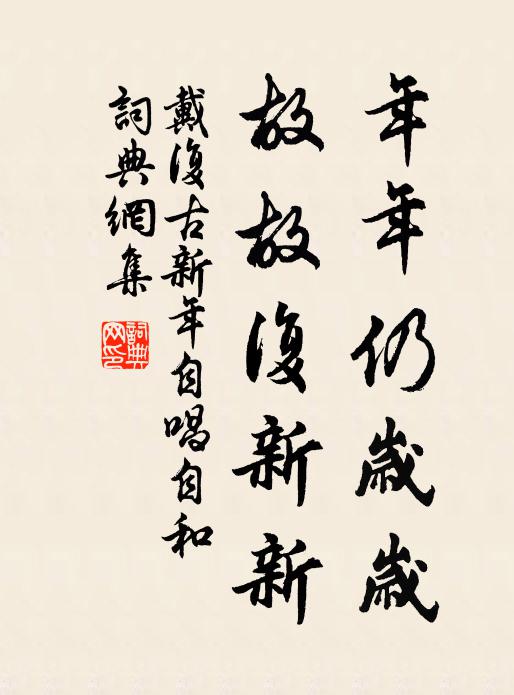 年年仍歲歲
故故復新新
戴復古新年自唱自和
詞典網集
詞典网印